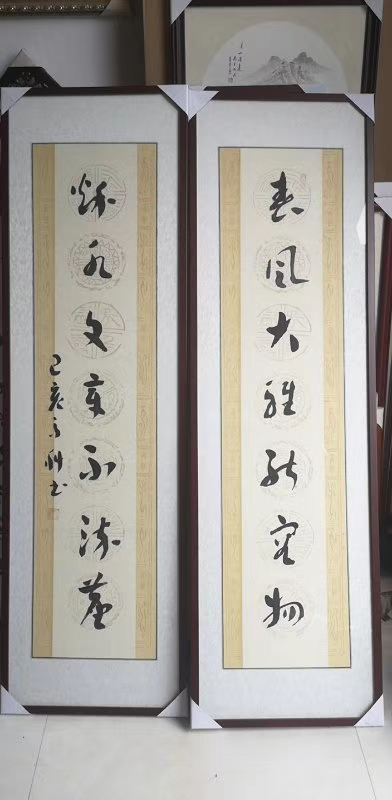 春风大雅能容物
秋水文章不染尘
己亥
书